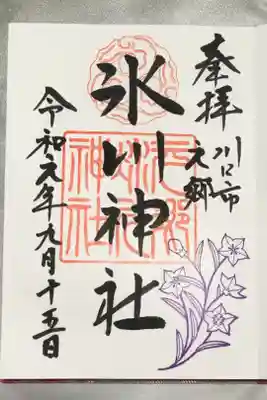 奉拝
川口市
元郷
氷川神社
令和元年九月十五日